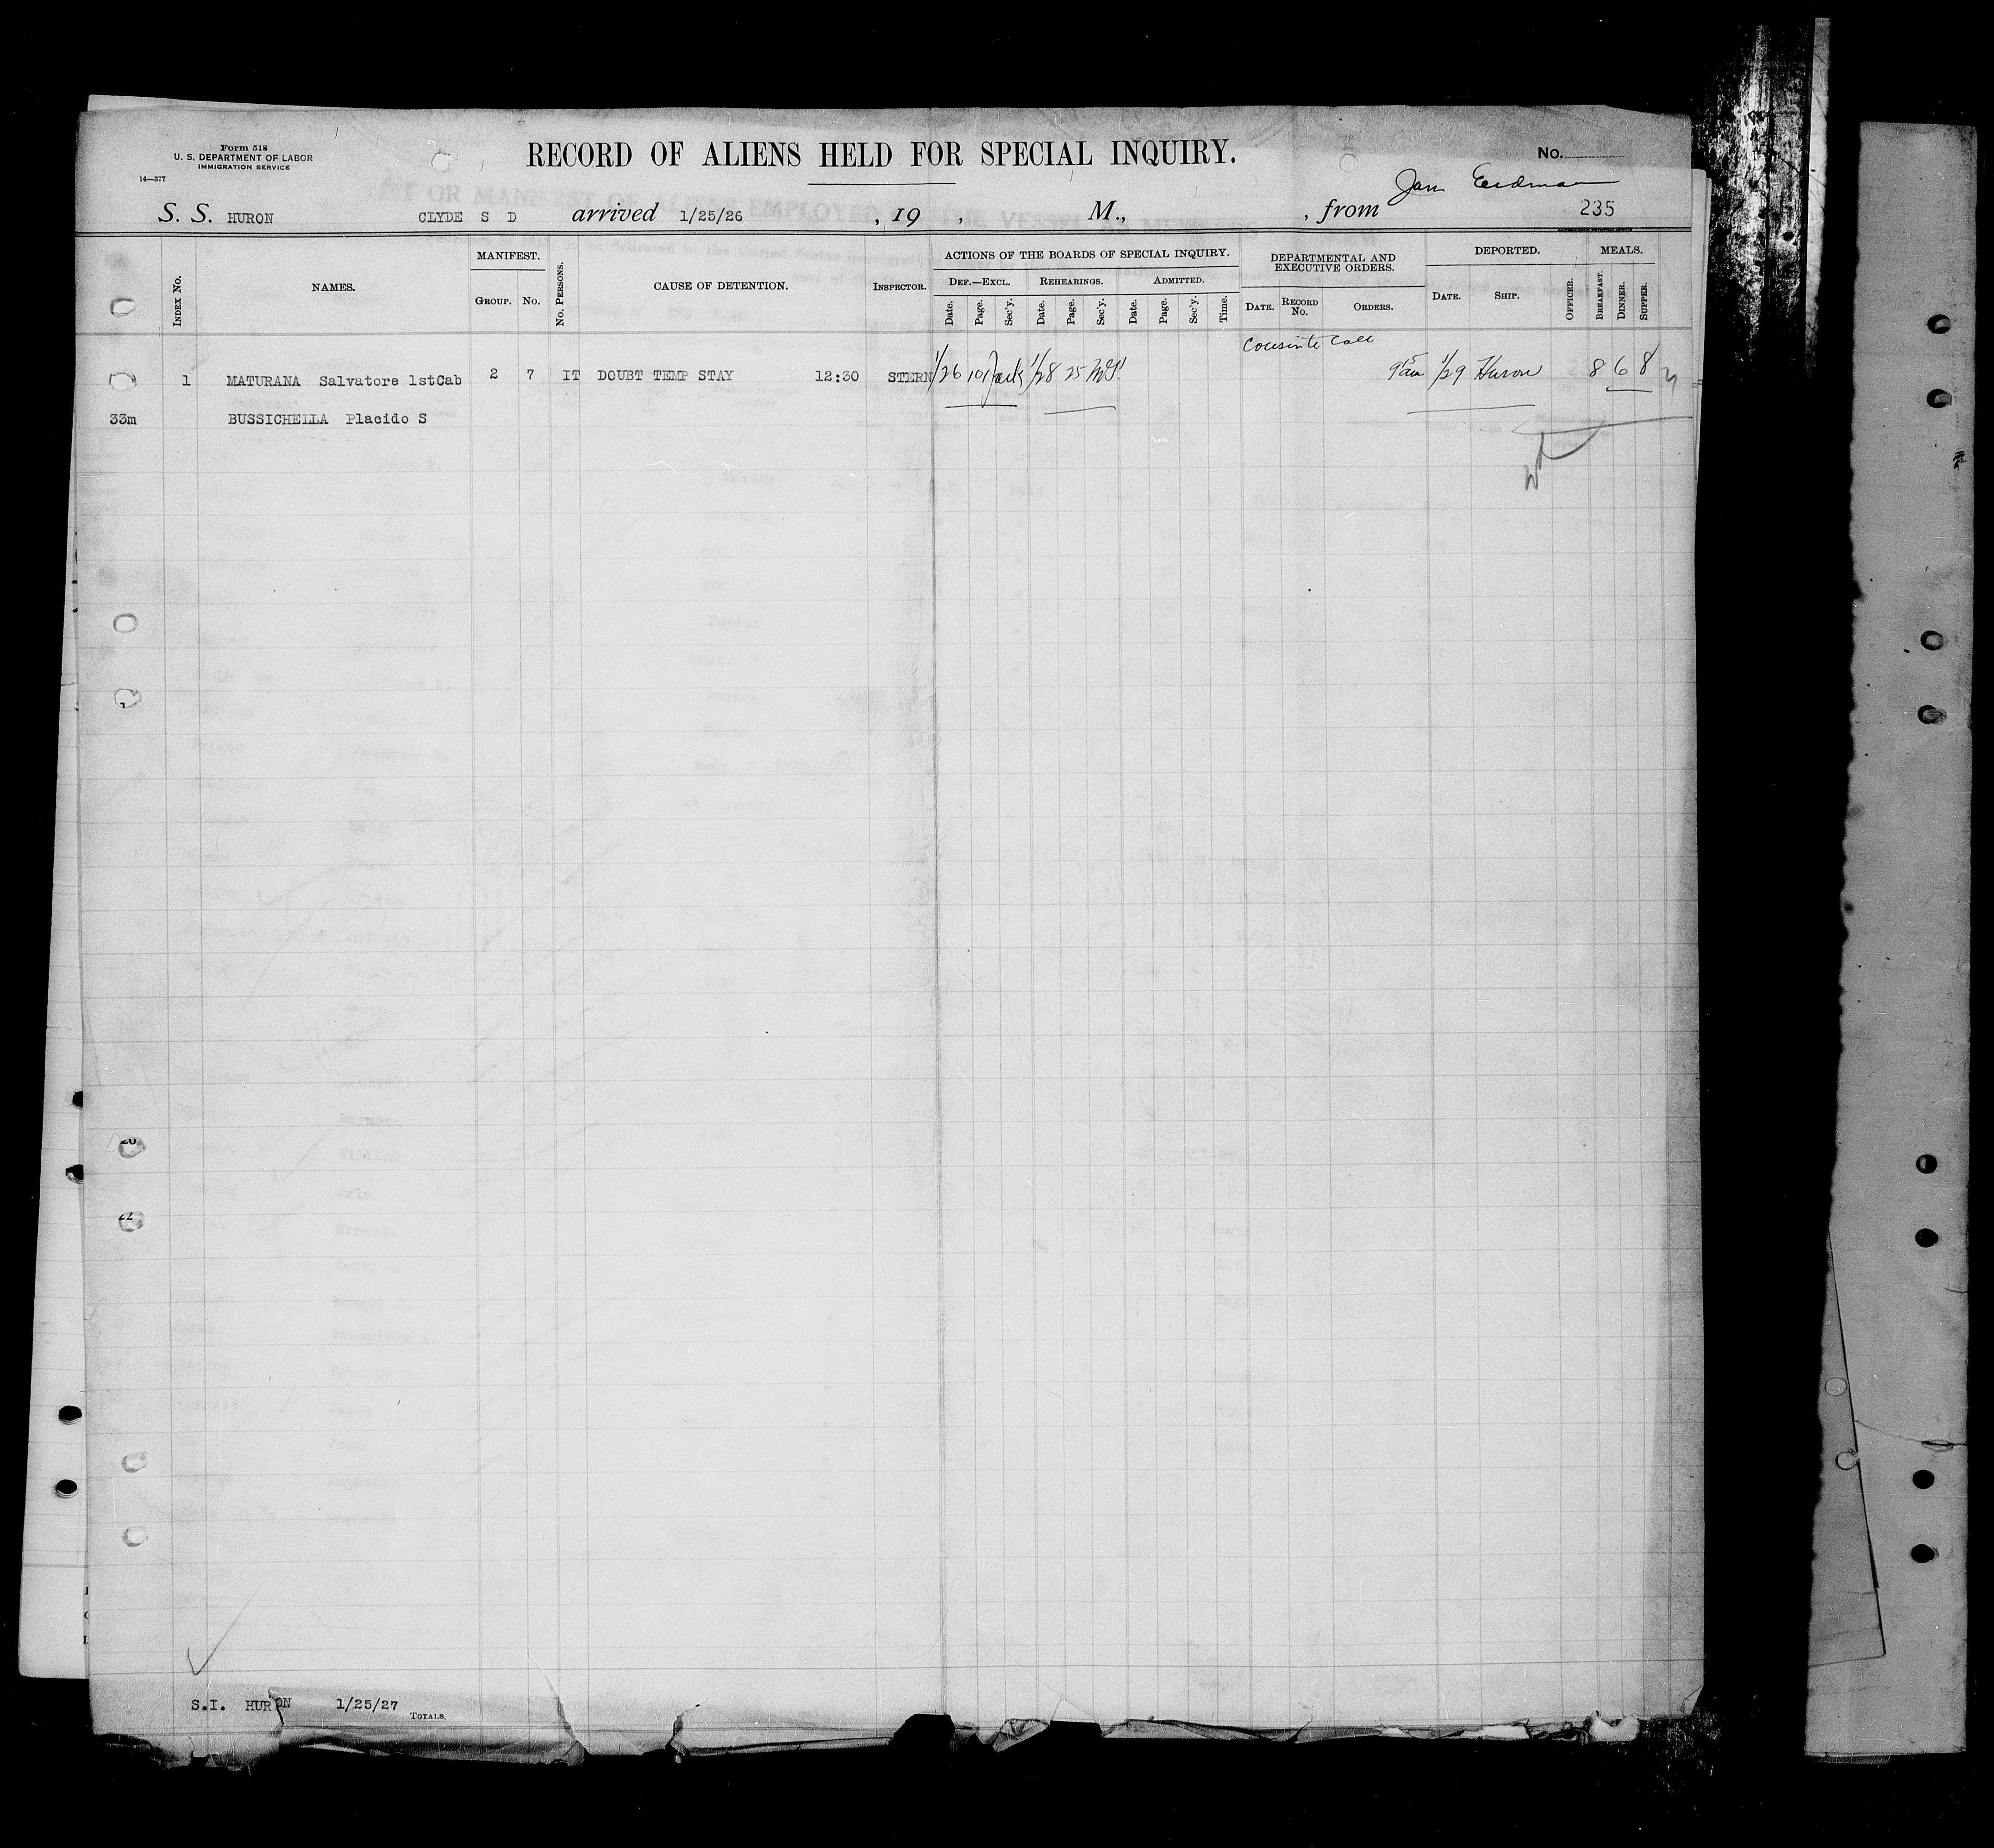 Form 518
U. S. DEPARTMENT OF LABOR
IMMIGRATION SERVICE
14—377
RECORD OF ALIENS HELD FOR SPECIAL INQUIRY.
No.
S. S. HURON CLYDE S D arrived 1/25/26 , 19 , M., , from
235
INDEX No.
NAMES.
MANIFEST.
GROUP. No.
No. PERSONS.
CAUSE OF DETENTION.
INSPECTOR.
ACTIONS OF THE BOARDS OF SPECIAL INQUIRY.
DEF.—EXCL. REHEARINGS. ADMITTED.
Date. Page. Sec'y. Date. Page. Sec'y. Date. Page. Sec'y. Time.
DEPARTMENTAL AND EXECUTIVE ORDERS.
DATE. RECORD No. ORDERS.
DEPORTED.
DATE. SHIP. OFFICER.
MEALS.
BREAKFAST. DINNER. SUPPER.
1 MATURANA Salvatore 1stCab 2 7 IT DOUBT TEMP STAY 12:30 STERN 1/26 101 1/28 25 1/29 Huron 8 6 8
33m BUSSICHELLA Placido S
S.I. HURON 1/25/27
TOTALS